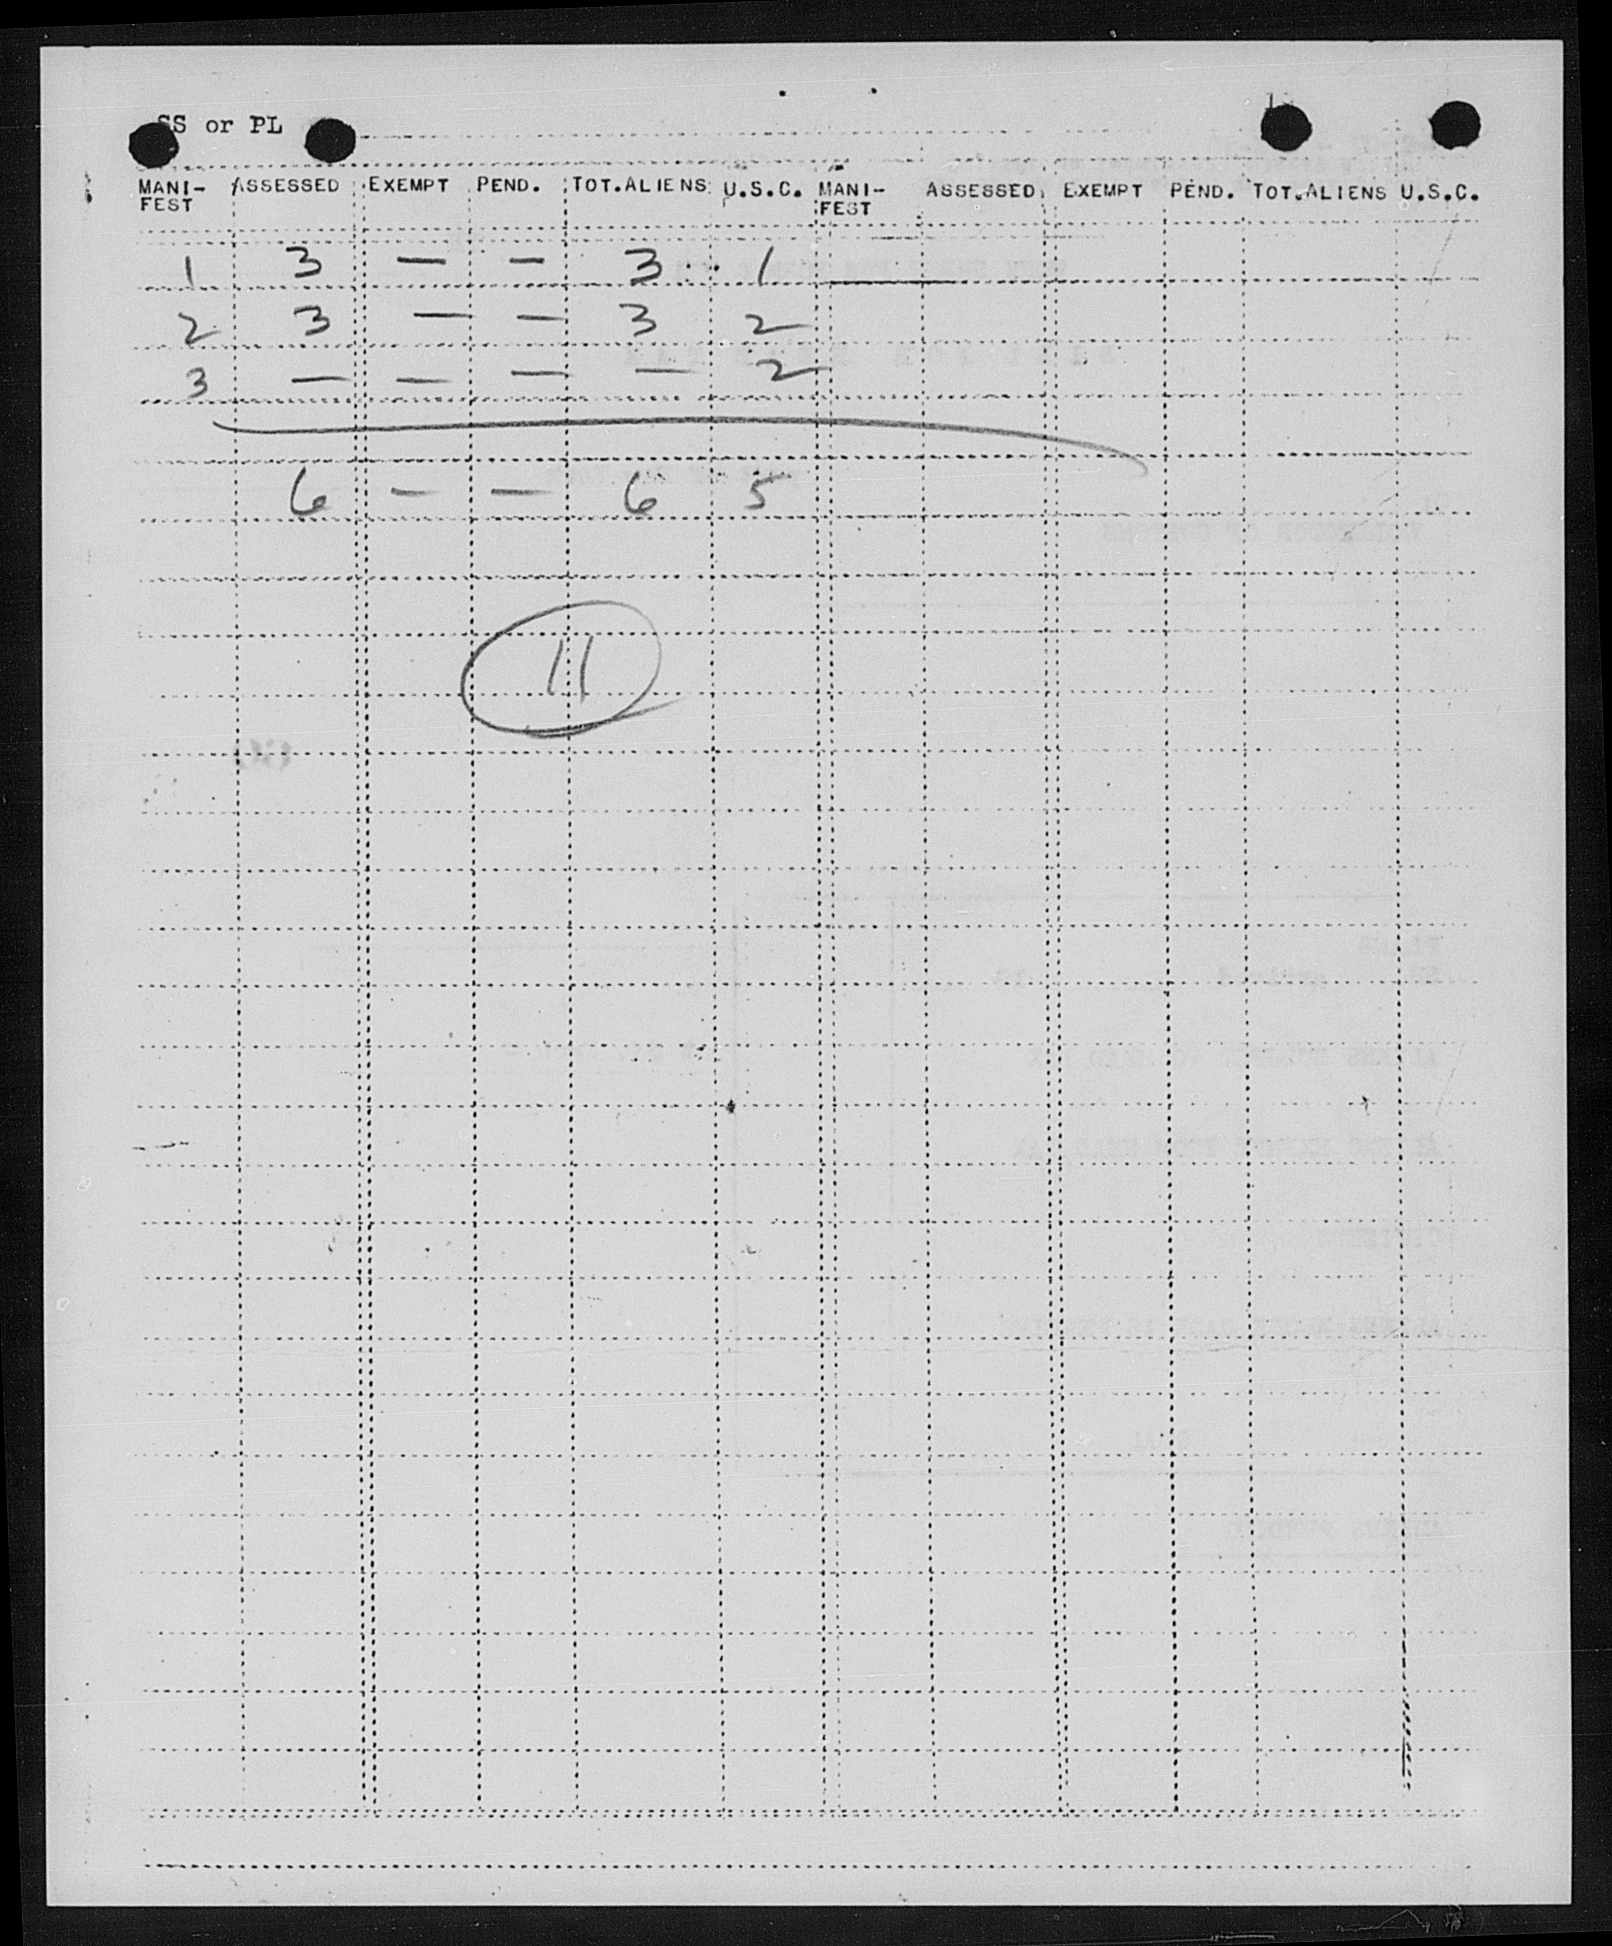 SS or PL
MANI-FEST ASSESSED EXEMPT PEND. TOT.ALIENS U.S.C. MANI-FEST ASSESSED EXEMPT PEND. TOT.ALIENS U.S.C.
1 3 — — 3 1
2 3 — — 3 2
3 — — — — 2
6 — — 6 5
11